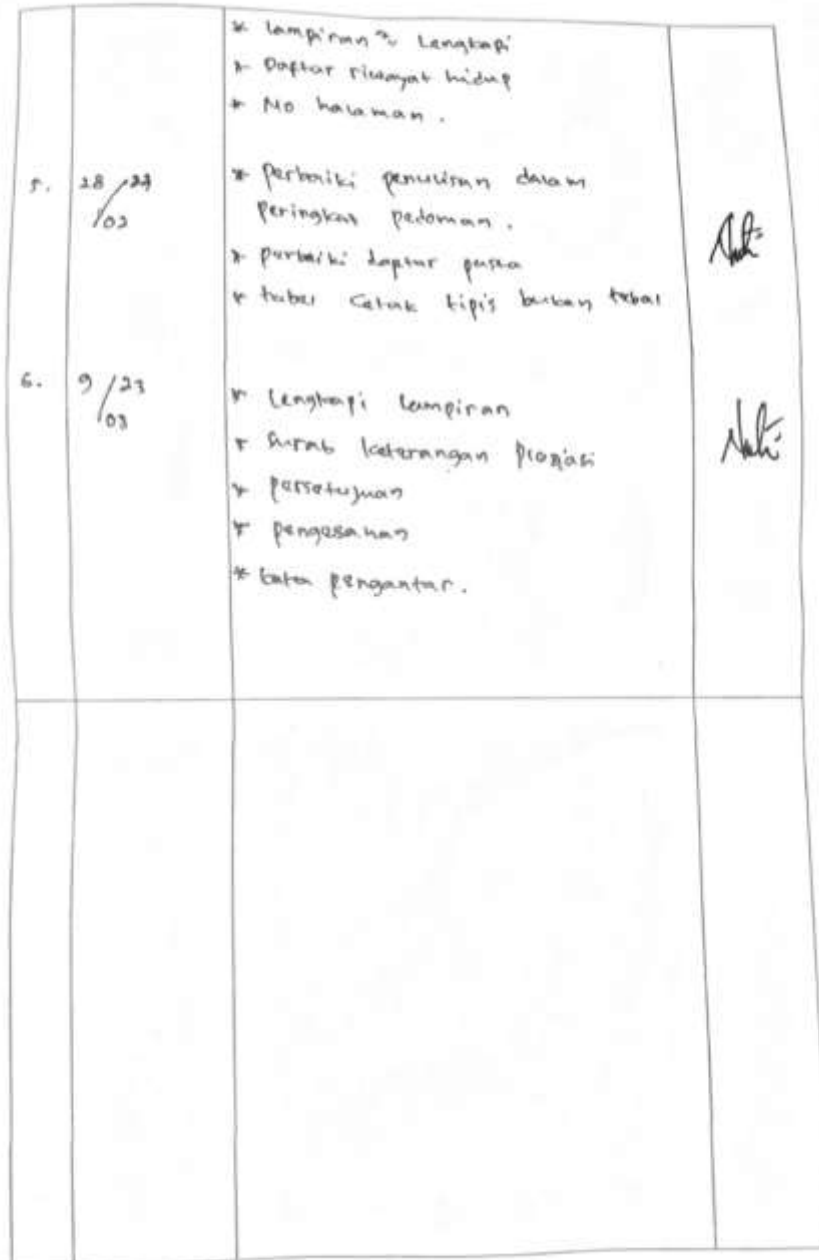 * Lampiran² Lengkapi
* Daftar riwayat hidup
* No halaman.
5. 28/02 * Perbaiki penulisan dalam
peringkat pedoman.
* perbaiki daptar pusta
* tabel Cetak tipis bukan tebal
6. 9/23 03 * Lengkapi lampiran
* Surat keterangan
* persetujuan
* pengesahan
* kata pengantar.